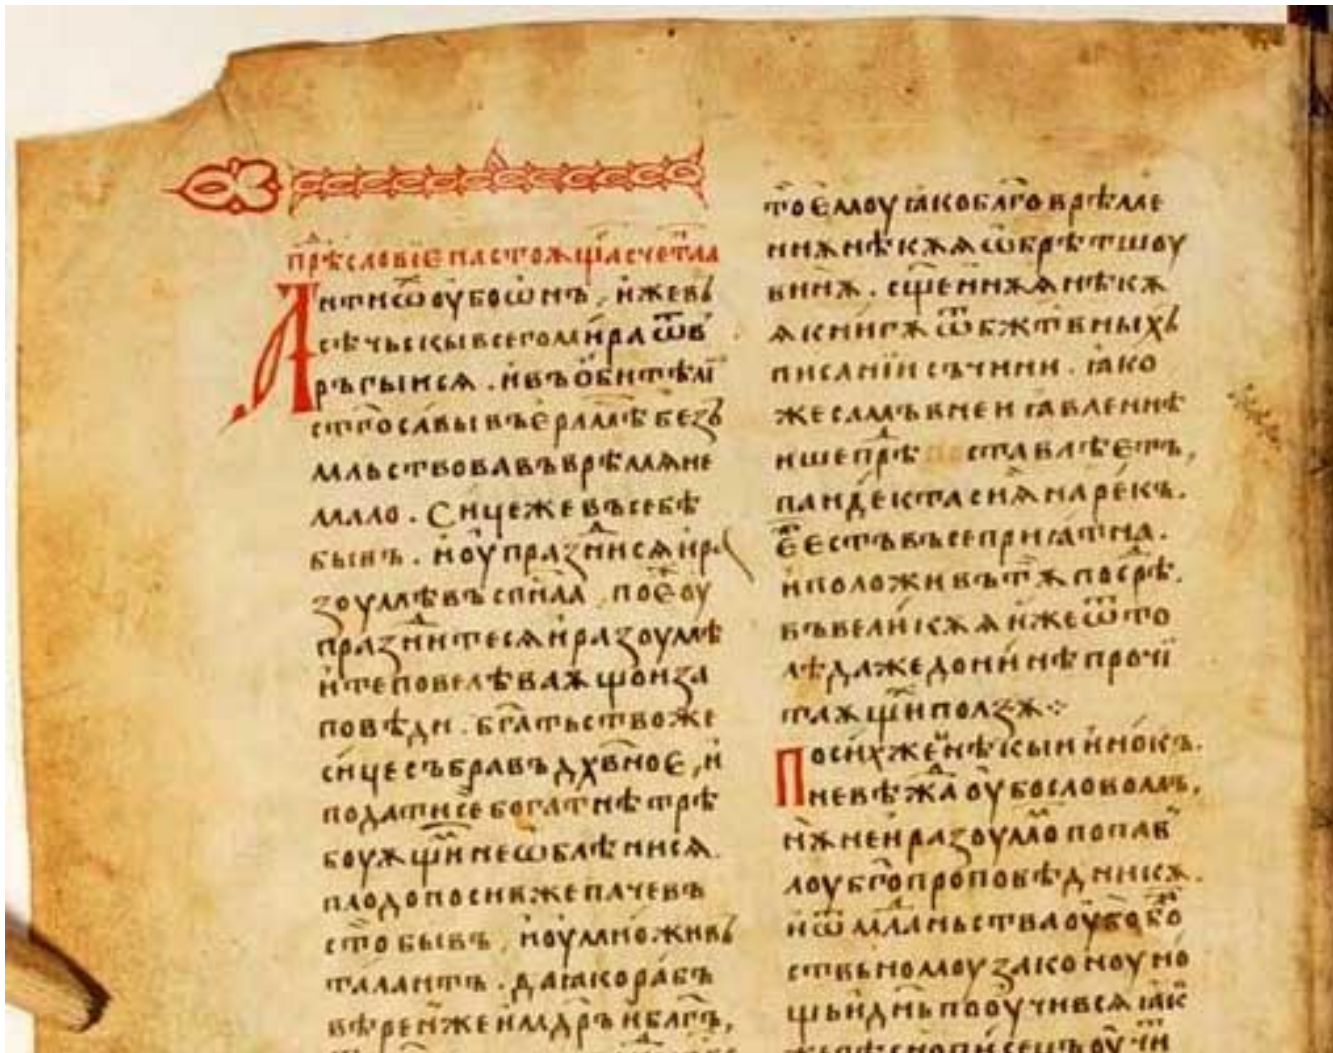 прѣ́словїе настоѧщаⷢ҇ счетⷶ҇ла
Антиѡⷯ оубо ѡнъ, иже в҄
сѣчьскы всего мира ѿв҄
ръгыисѧ. и въ обитѣлї
ст҃го савы въ ер҃лмѣ без҄
мльствовавъ врѣмѧ не
мало. Сице же въ себѣ
бывъ. и оупразⷣнисѧ и ра
зоумѣвъ сп҃са, поⷤ҇ бѹ
празⷣнитесѧ и разоумѣ
ите повелѣваѫщои за
повѣди. бг҃атьство же
сице събравъ дх҃вное, и
податисе богатнѣ трѣ
боуѫщиⷨ не ѡблѣнисѧ.
плодоносив же паче въ
ст҃о бывъ, и оумножив҄
талантъ. да ꙗко рабъ
вѣрен же и мⷣръ и благъ,
то емоу ꙗко бл҃говрѣме
ниѧ нѣкѫѧ ѡбрѣтшоу
вины. сщ҃еннѫѧ нѣкѫ
ѧ книгѫ ѿ бжⷭ҇твных҄
писанїи съчини. ꙗко
же самъ в неи ꙗвленнѣ
ише прѣⷣставлѣетъ,
пандекта сиѧ нарекъ.
еⷤ҇ естъ всеприꙗтна.
и положи въ тѫ посрѣⷣ.
въ великѫѧ иже ѿто
лѣ даже до нинѣ прочї
таѫщиⷨ ползѫ⁘
По сих же нѣкыи инокъ.
невѣжⷣа оубо словомъ,
нѫ не и разоумоⷨ по паⷡ
лоу бг҃опроповѣдникѫ.
и ѿ млаⷣньства оубо бо
ствьномоу законоу но
щь и дн҃ь пооучивсѧ ꙗк